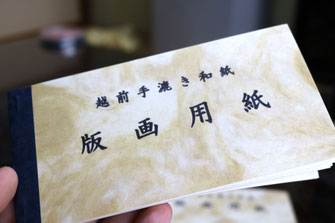 越前手漉き和紙
版画用紙